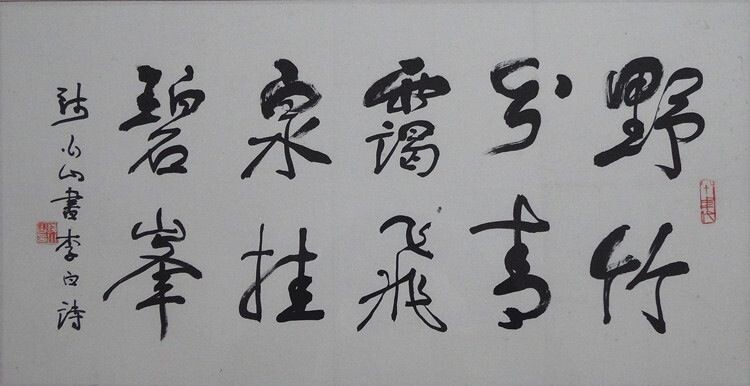 野竹
分青
靄飛
泉挂
碧峯
山書李白詩